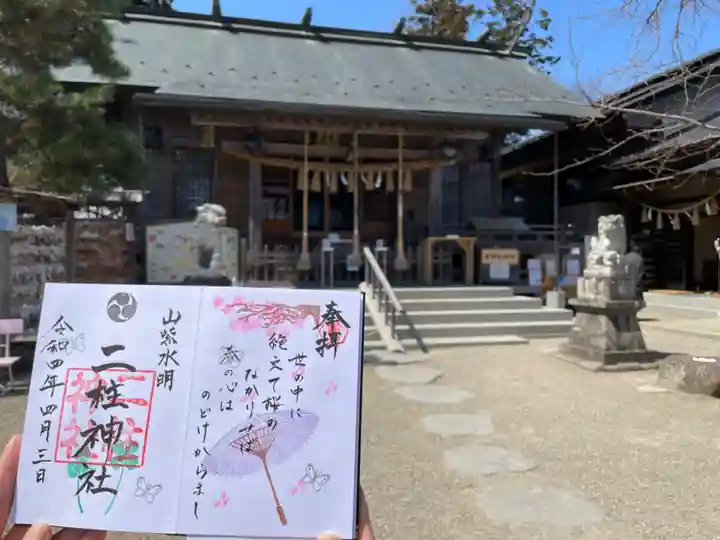 奉拝
世の中に
絶えて桜の
なかりせば
春の心は
のどけからまし
山紫水明
二柱神社
二柱
神社
令和四年四月三日